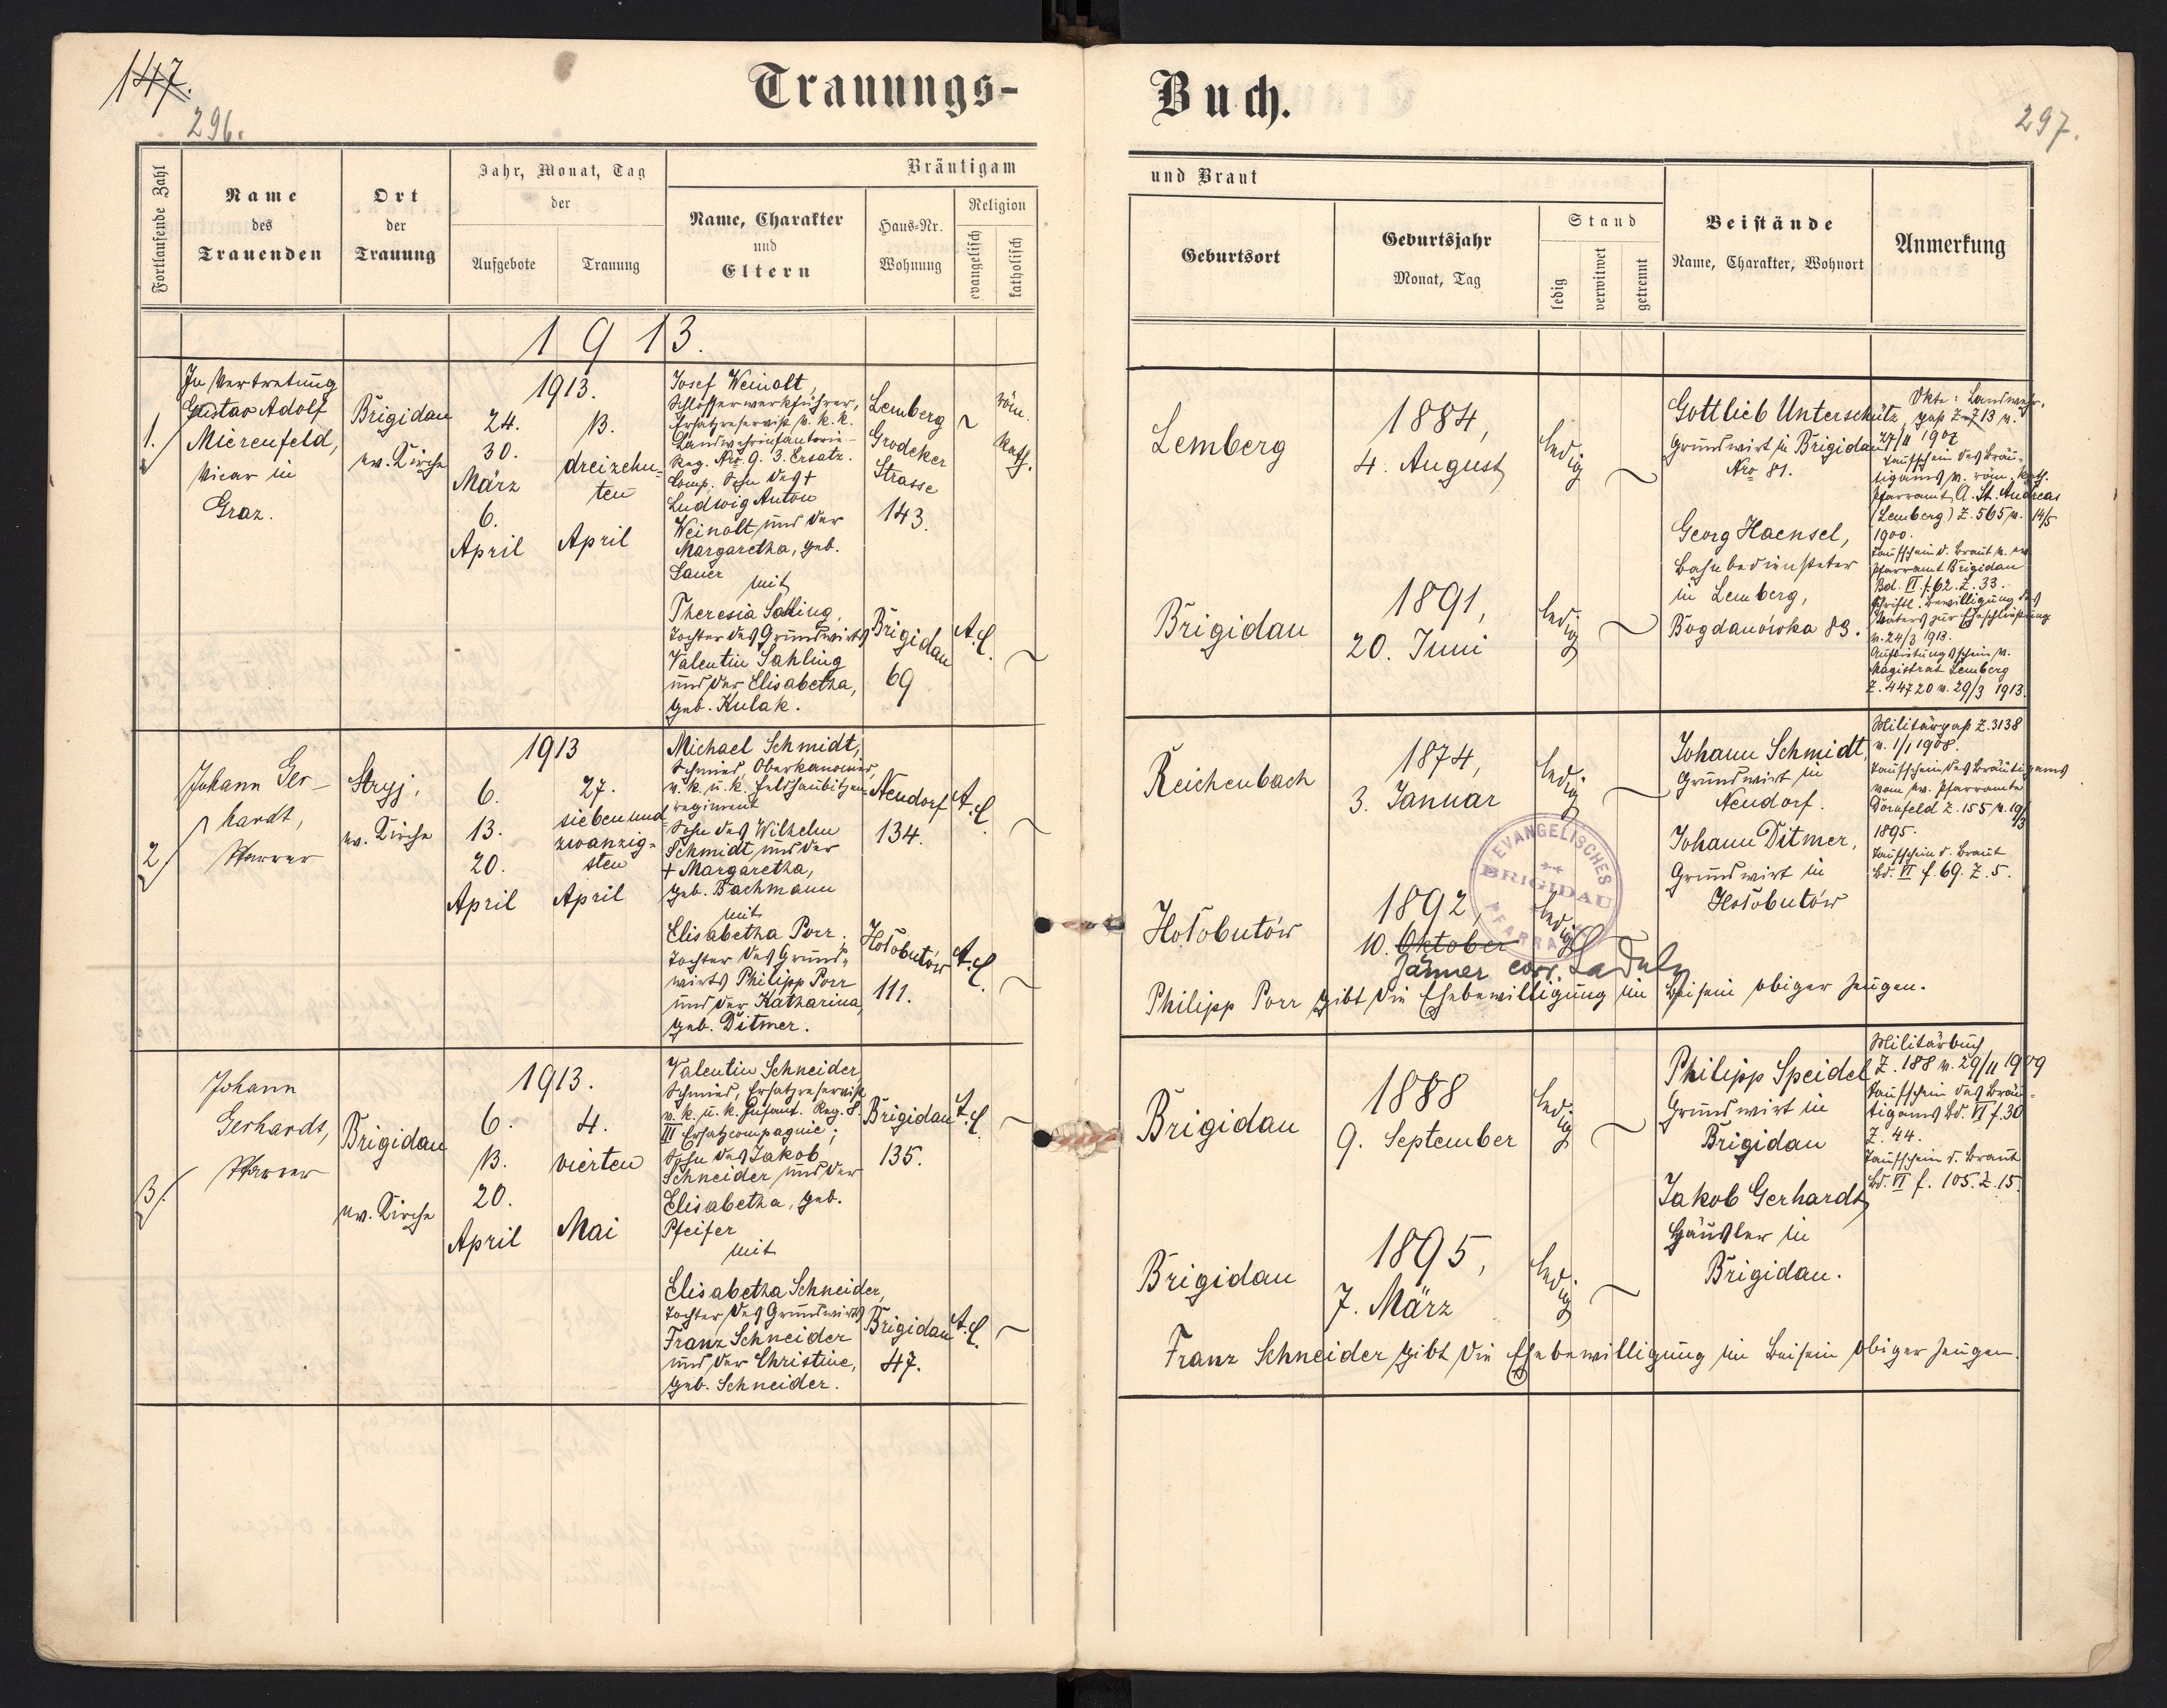 147.
296.
Trauungs-
Fortlaufende Zahl
Name
des
Trauenden
Ort
der
Trauung
Jahr, Monat, Tag
der
Aufgebote
Trauung
Bräutigam
Name, Charakter
und
Eltern
Haus-Nr.
Wohnung
Religion
evangelisch
katholisch
1913.
1.
In Vertretung
Gustav Adolf
Mierenfeld,
Vicar in
Graz.
Brigidau
ev. Kirche
1913.
24.
30.
März
6.
April
13.
dreizehn-
ten
April
Josef Weinolt,
Schlosserwerkführer,
Ersatzreservist v. k. k.
Landwehrinfanterie-
Reg. Nro. 9. 3. Ersatz-
Comp. Sohn des †
Ludwig Anton
Weinolt und der
Margaretha, geb.
Lauer
mit
Theresia Sahling,
Tochter des Grundwirts
Valentin Sahling
und der Elisabetha,
geb. Kulak.
Lemberg
Grodeker
Strasse
143.
röm.
kath.
Brigidau
69
A.C.
2
Johann Ger-
hardt,
Pfarrer
Stryj,
ev. Kirche
1913
6.
13.
20.
April
27.
siebenund
zwanzig-
sten
April
Michael Schmidt,
Schmied, Oberkanonier,
v. k. u. k. Feldhaubitzen-
regiment
Sohn des Wilhelm
Schmidt und der
† Margaretha,
geb. Bachmann
mit
Elisabetha Porr.
Tochter des Grund-
wirts Philipp Porr
und der Katharina,
geb. Ditmer.
Neudorf
134.
A.C.
Hołobutów
111.
A.C.
3.
Johann
Gerhardt,
Pfarrer
Brigidau
ev. Kirche
1913.
6.
13.
20.
April
4.
vierten
Mai
Valentin Schneider,
Schmied, Ersatzreservist
v. k. u. k. Infant. Reg. 8.
III Ersatzcompagnie;
Sohn des Jakob
Schneider und der
Elisabetha, geb.
Pfeifer
mit
Elisabetha Schneider,
Tochter des Grundwirts
Franz Schneider
und der Christine,
geb. Schneider.
Brigidau
135.
A.C.
Brigidau
47.
A.C.
Buch.
297.
und Braut
Geburtsort
Geburtsjahr
Monat, Tag
Stand
ledig
verwitwet
getrennt
Beistände
Name, Charakter, Wohnort
Anmerkung
Lemberg
1884,
4. August
ledig
Brigidau
1891,
20. Juni
ledig
Gottlieb Unterschütz,
Grundwirt in Brigidau
Nro 81.
Georg Haensel,
Bahnbediensteter
in Lemberg,
Bogdanówka 83.
Landwehr-
paß Z. 713 v.
27/11 1907
Taufschein des Bräu-
tigams v. röm. kath.
Pfarramt A. St. Andreas
(Lemberg) Z. 565 v. 14/5
1900.
Taufschein d. Braut v. ev.
Pfarramt Brigidau
Bd. VI f. 62. Z. 33.
Schriftl. Bewilligung des
Vaters zur Eheschließung
v. 24/3 1913.
Aufbietungsschein v.
Magistrat Lemberg
Z. 44720 v. 29/3 1913.
Reichenbach
1874,
3. Januar
ledig
Hołobutów
1892,
10. Oktober
Jänner corr.
ledig
EVANGELISCHES
BRIGIDAU
PFARRAMT
Johann Schmidt,
Grundwirt in
Neudorf.
Johann Ditmer,
Grundwirt in
Hołobutów
Militärpaß Z. 3138
v. 1/1 1908.
Taufschein des Bräutigams
vom ev. Pfarramte
Dornfeld Z. 155 v. 19/3
1895.
Taufschein d. Braut
Bd. VI f. 69. Z. 5.
Philipp Porr gibt die Ehebewilligung im Beisein obiger Zeugen.
Brigidau
1888
9. September
ledig
Brigidau
1895,
7. März
ledig
Philipp Speidel
Grundwirt in
Brigidau
Jakob Gerhardt,
Häusler in
Brigidau.
Militärbuch
Z. 188 v. 29/11 1909
Taufschein des Bräu-
tigams Bd. VI f. 30
Z. 44.
Taufschein d. Braut
Bd. VI f. 105. Z. 15.
Franz Schneider gibt die Ehebewilligung im Beisein obiger Zeugen.